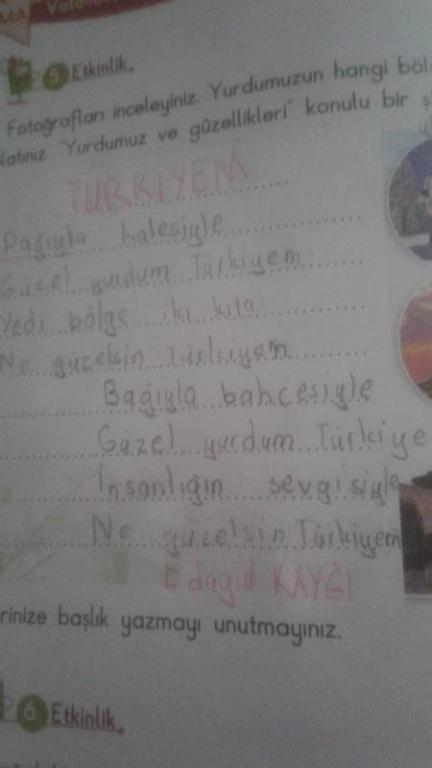 5 Etkinlik
Fotoğrafları inceleyiniz. Yurdumuzun hangi
"Yurdumuz ve güzellikleri" konulu bir
TÜRKİYEM
Dağıyla kalesiyle
Güzel yurdum Türkiyem
Yedi bölge iki kıta
Ne güzelsin Türkiyem
Bağıyla bahçesiyle
Güzel yurdum Türkiye
İnsanlığın sevgisiyle
Ne güzelsin Türkiyem
KAYĞI
rinize başlık yazmayı unutmayınız.
6 Etkinlik